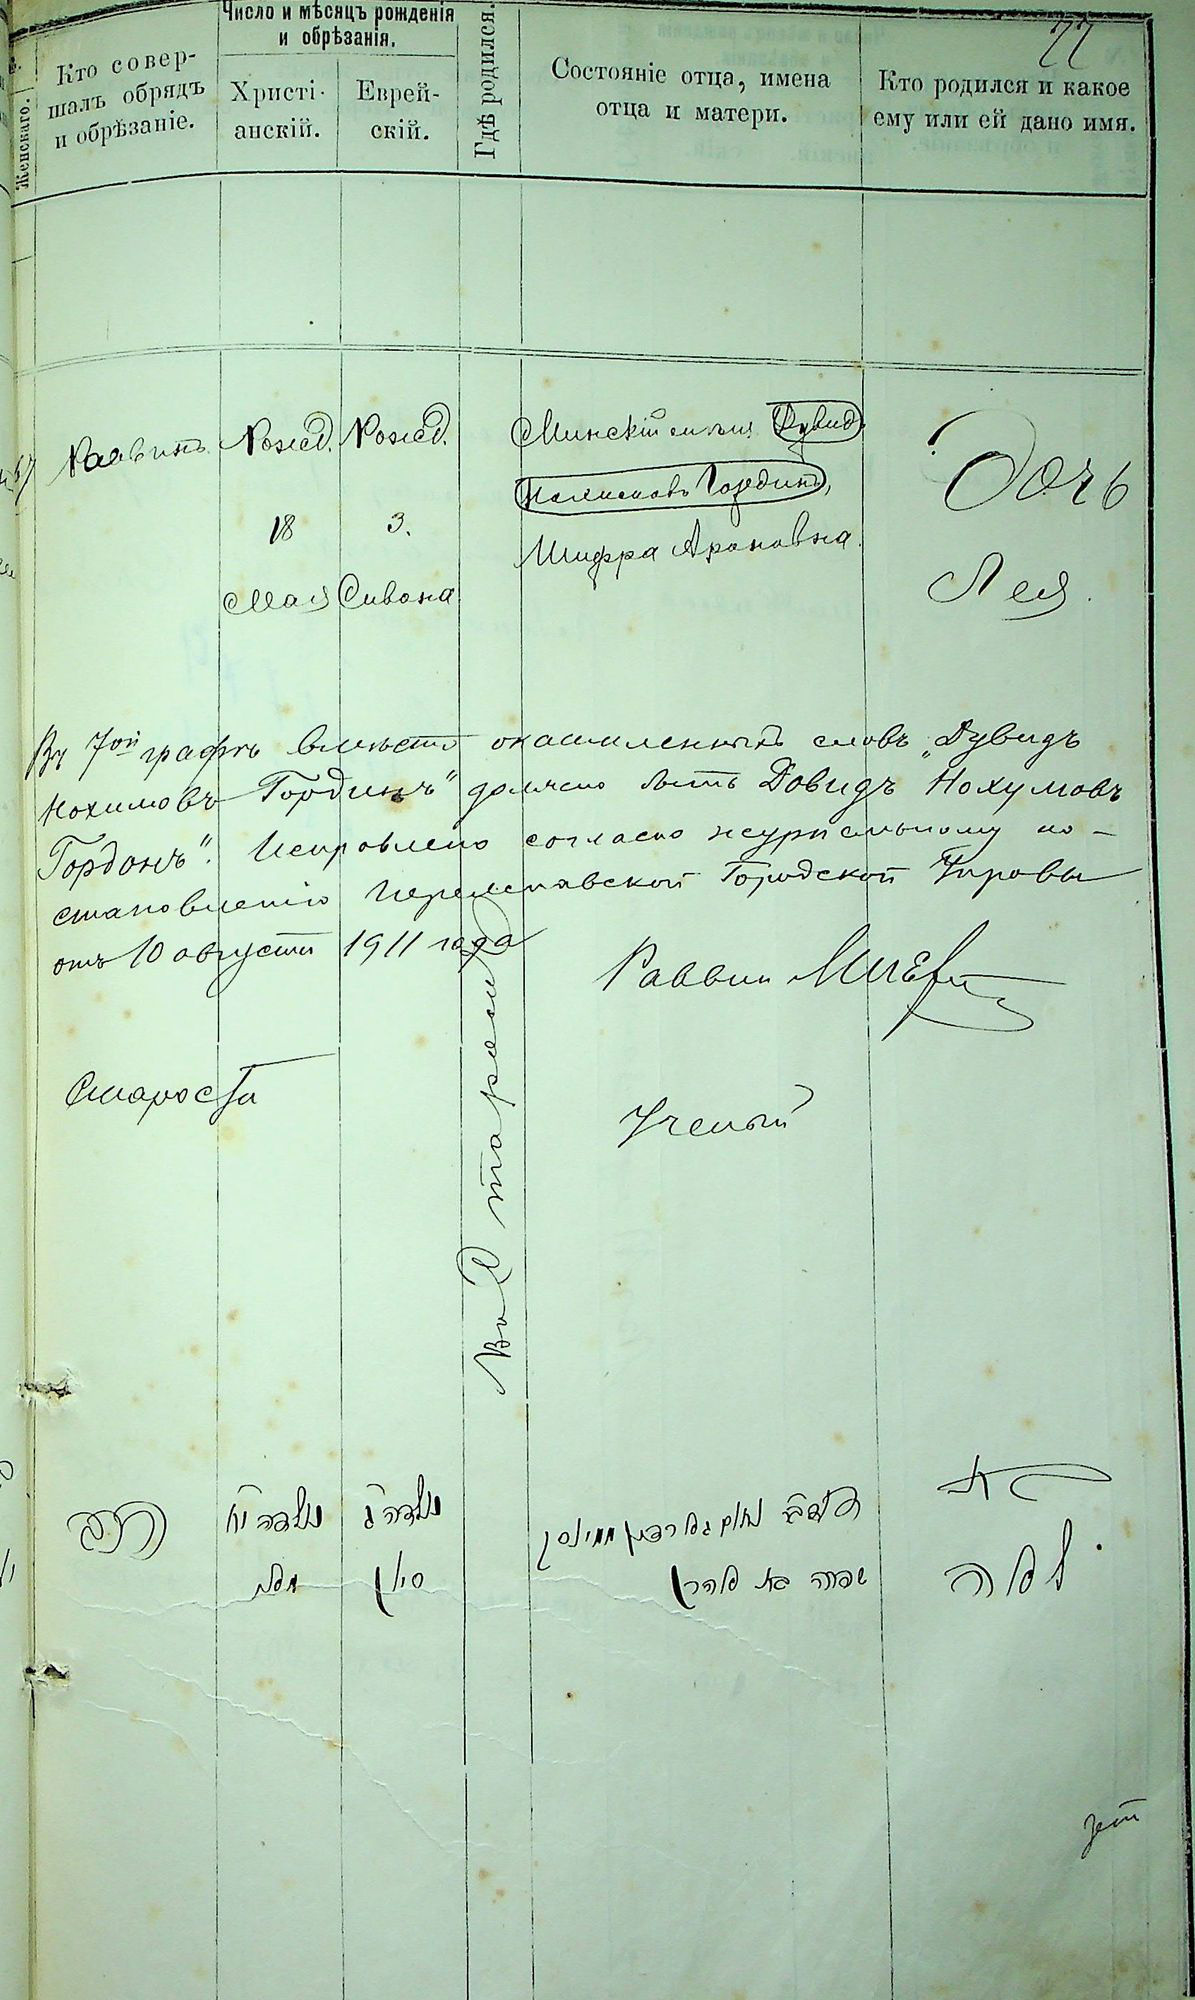 77
Женскаго.
Кто совер-
шалъ обрядъ
и обрѣзаніе.
Число и мѣсяцъ рожденія
и обрѣзанія.
Христі-
анскій.
Еврей-
скій.
Гдѣ родился.
Состояніе отца, имена
отца и матери.
Кто родился и какое
ему или ей дано имя.
Раввинъ
Рожд.
18
Мая
Рожд.
3.
Сивона
Минскій мѣщ. Дувидъ
Нохимовъ Гординъ,
Шифра Ароновна.
Дочь
Лея.
Въ 7ой графѣ вмѣсто окаймленныхъ словъ „Дувидъ
Нохимовъ Гординъ" должно быть Довидъ „Нохумовъ
Гордонъ". Исправлено согласно журнальному по-
становленію Переяславской Городской Управы
отъ 10 августа 1911 года
Раввин
Староста
Ученый
הרב
נולדה יח
מאי
נולדה ג
סיון
נחום
ממינסק
שפרה בת אהרן
בת
לאה